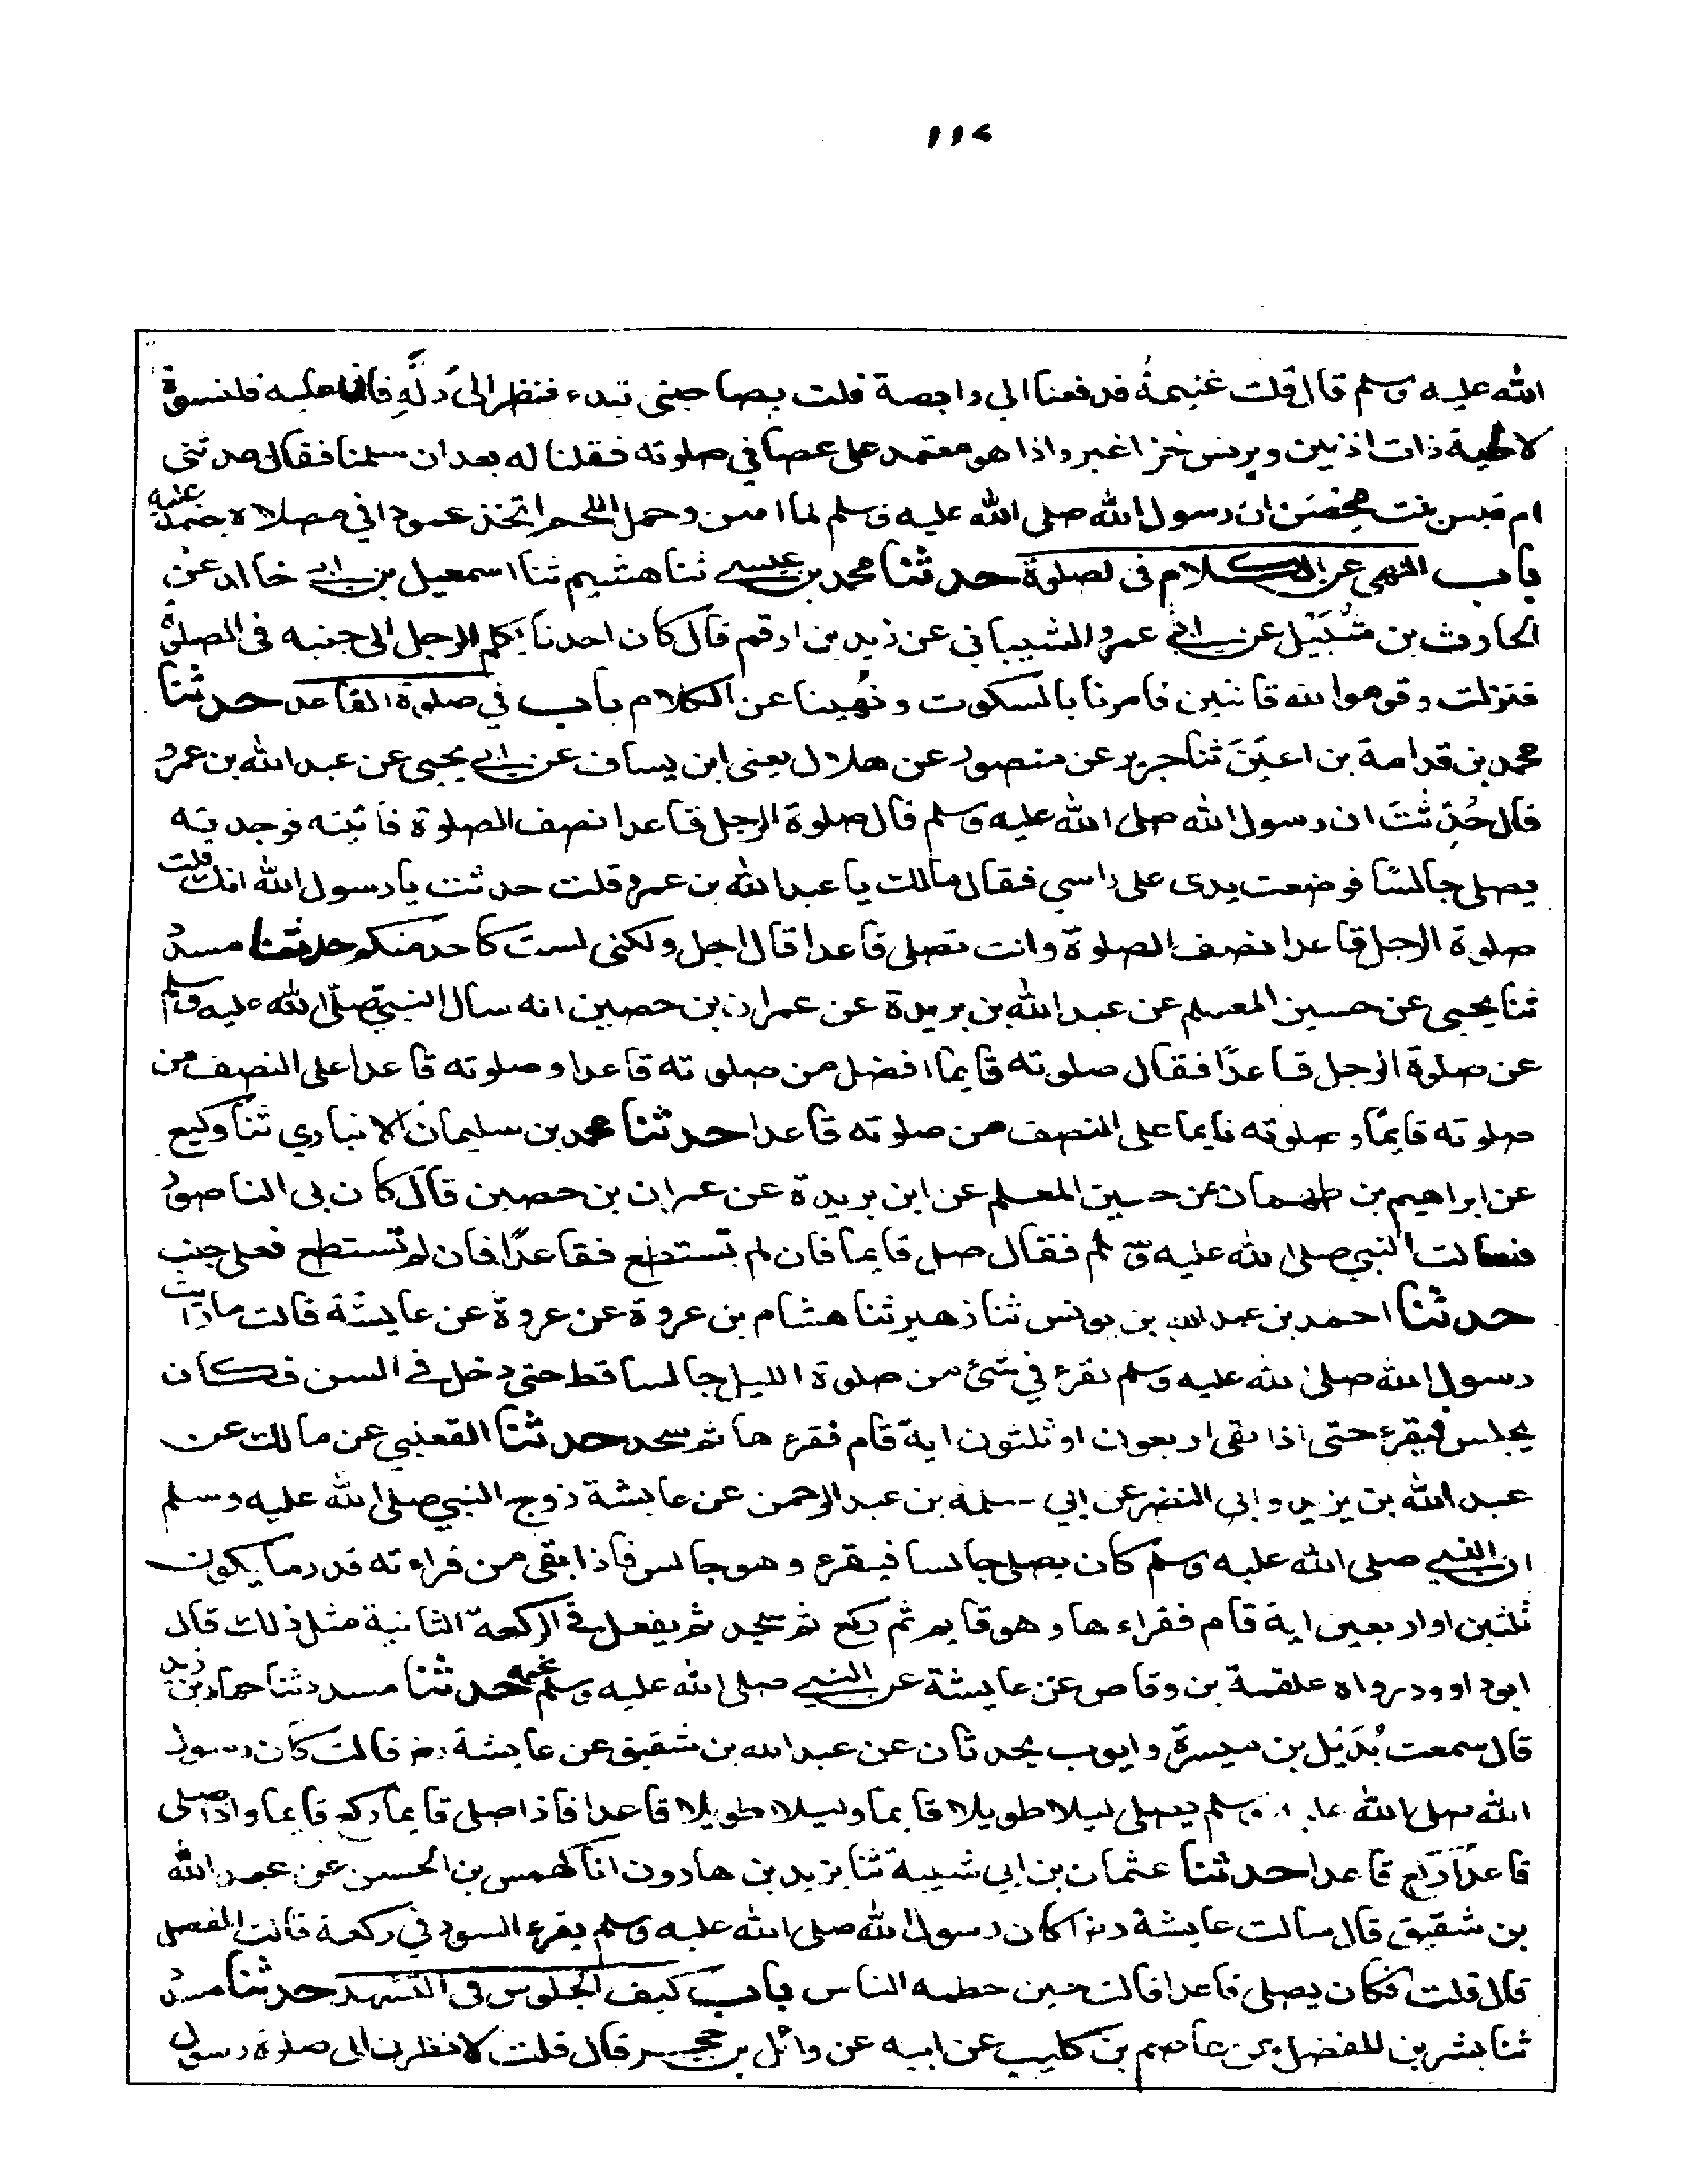 ١١٧
الله عليه وسلم قال قلت غنيمة فدفعنا الى وابصة قلت بصاحبى نبدء فننظر الى دله فاذا عليه قلنسوة
لاطية ذات اذنين وبرنس خز اغبر واذا هو معتمد على عصا في صلوته فقلنا له بعد ان سلمنا فقال حدثتنى
ام قيس بنت محصن ان رسول الله صلى الله عليه وسلم لما اسن وحمل اللحم اتخذ عمودا في مصلاه يعتمد عليه
باب النهى عن الكلام فى الصلوة حدثنا محمد بن عيسى ثنا هشيم ثنا اسمعيل بن ابى خالد عن
الحارث بن شبيل عن ابى عمرو الشيبانى عن زيد بن ارقم قال كان احدنا يكلم الرجل الى جنبه فى الصلوة
فنزلت وقوموا لله قانتين فامرنا بالسكوت ونهينا عن الكلام باب في صلوة القاعد حدثنا
محمد بن قدامة بن اعين ثنا جرير عن منصور عن هلال يعنى ابن يساف عن ابى يحيى عن عبد الله بن عمرو
قال حدثت ان رسول الله صلى الله عليه وسلم قال صلوة الرجل قاعدا نصف الصلوة فاتيته فوجدته
يصلى جالسا فوضعت يدى على راسي فقال مالك يا عبد الله بن عمرو قلت حدثت يا رسول الله انك قلت
صلوة الرجل قاعدا نصف الصلوة وانت تصلى قاعدا قال اجل ولكنى لست كاحد منكم حدثنا مسدد
ثنا يحيى عن حسين المعلم عن عبد الله بن بريدة عن عمران بن حصين انه سال النبى صلى الله عليه وسلم
عن صلوة الرجل قاعدا فقال صلوته قايما افضل من صلوته قاعدا وصلوته قاعدا على النصف من
صلوته قايما وصلوته نايما على النصف من صلوته قاعدا حدثنا محمد بن سليمان الانباري ثنا وكيع
عن ابراهيم بن طهمان عن حسين المعلم عن ابن بريدة عن عمران بن حصين قال كان بى الناصور
فسالت النبي صلى الله عليه وسلم فقال صل قايما فان لم تستطع فقاعدا فان لم تستطع فعلى جنب
حدثنا احمد بن عبد الله بن يونس ثنا زهير ثنا هشام بن عروة عن عروة عن عايشة قالت ما رايت
رسول الله صلى الله عليه وسلم يقرء في شئ من صلوة الليل جالسا قط حتى دخل في السن فكان
يجلس فيقرء حتى اذا بقى اربعون او ثلثون اية قام فقرءها ثم سجد حدثنا القعنبي عن مالك عن
عبد الله بن يزيد وابى النضر عن ابي سلمة بن عبد الرحمن عن عايشة زوج النبي صلى الله عليه وسلم
ان النبي صلى الله عليه وسلم كان يصلى جالسا فيقرء وهو جالس فاذا بقى من قراءته قدر ما يكون
ثلثين او اربعين اية قام فقراءها وهو قايم ثم ركع ثم سجد ثم يفعل في الركعة الثانية مثل ذلك قال
ابو داوود رواه علقمة بن وقاص عن عايشة عن النبي صلى الله عليه وسلم نحوه حدثنا مسدد ثنا حماد بن زيد
قال سمعت بديل بن ميسرة وايوب يحدثان عن عبد الله بن شقيق عن عايشة رض قالت كان رسول
الله صلى الله عليه وسلم يصلى ليلا طويلا قايما وليلا طويلا قاعدا فاذا صلى قايما ركع قايما واذا صلى
قاعدا ركع قاعدا حدثنا عثمان بن ابي شيبة ثنا يزيد بن هارون انا كهمس بن الحسن عن عبد الله
بن شقيق قال سالت عايشة رض اكان رسول الله صلى الله عليه وسلم يقرء السور في ركعة قالت المفصل
قال قلت فكان يصلى قاعدا قالت حين حطمه الناس باب كيف الجلوس فى التشهد حدثنا مسدد
ثنا بشر بن المفضل عن عاصم بن كليب عن ابيه عن وائل بن حجر قال قلت لانظرن الى صلوة رسول